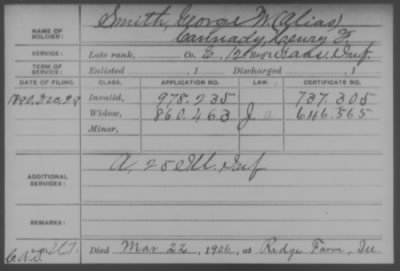 NAME OF SOLDIER: Smith, George W. (Alias)
Cannady, Henry F.
SERVICE: Late rank, Co. E, 12 Reg't Inf.
TERM OF SERVICE: Enlisted , 1 Discharged , 1
DATE OF FILING. CLASS. APPLICATION NO. LAW. CERTIFICATE NO.
1890, Invalid, 978.235 737.305
Widow, 860.463 646.565
Minor,
ADDITIONAL SERVICES: A, 25 Ill. Inf
REMARKS:
Died Mar 22, 1906, at Ridge Farm, Ill